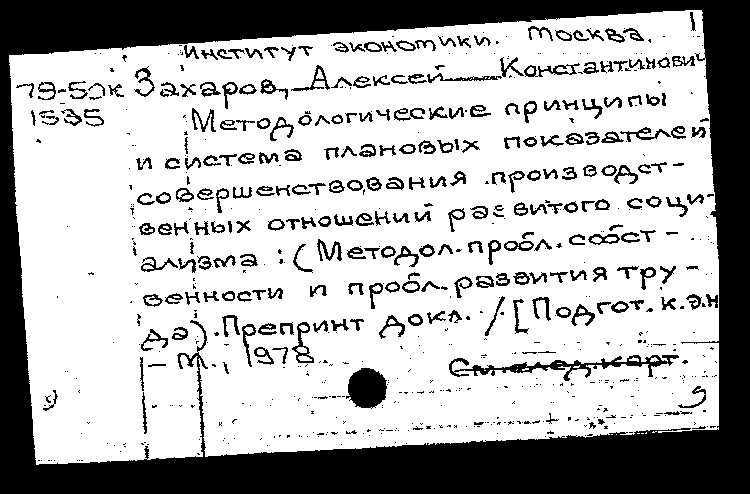 Институт экономики. Москва.
79-50к Захаров, Алексей Константинович
1535 Методологические принципы
и система плановых показателей
совершенствования производст-
венных отношений развитого соци-
ализма : (Методол. пробл. собст-
венности и пробл. развития тру-
да). Препринт докл. / [Подгот. к.э.н
– М., 1978.
См. след. карт.